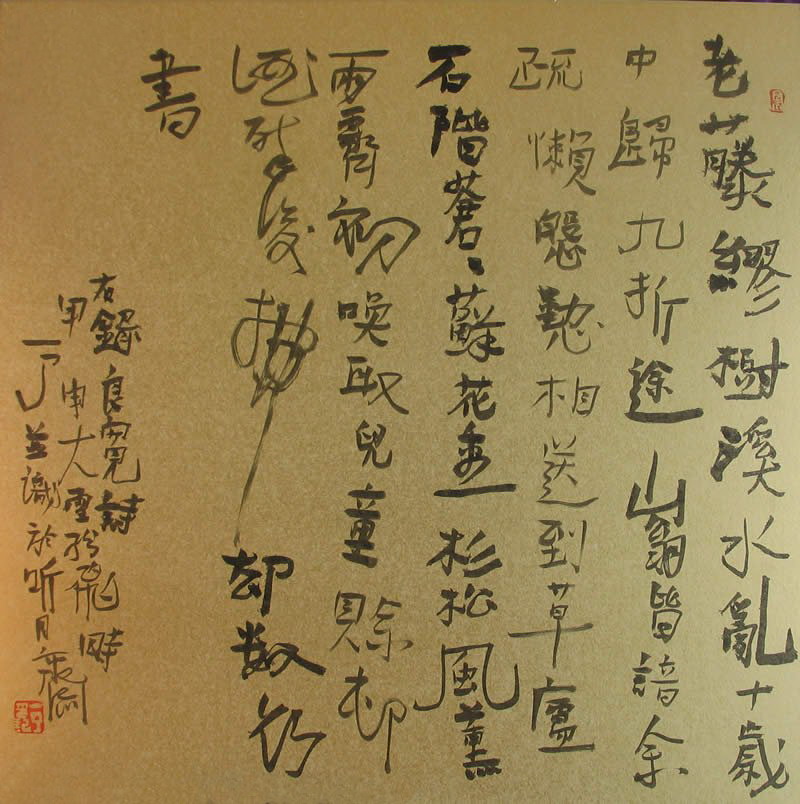 老藤繆樹溪水亂十歳
中歸九折途山翁皆諳余
疏懶慇懃相送到草廬
石階蒼々蘚花重杉松風薫
雨霽初喚取兒童賒村
酒醉後拂却数行
書
右錄良寬詩
甲申大雪紛飛時
一了並識於听月